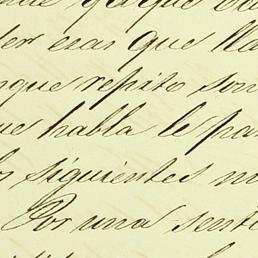 que
der esas que lla
nque repito son
ue habla le pa
siguientes
Por una sent